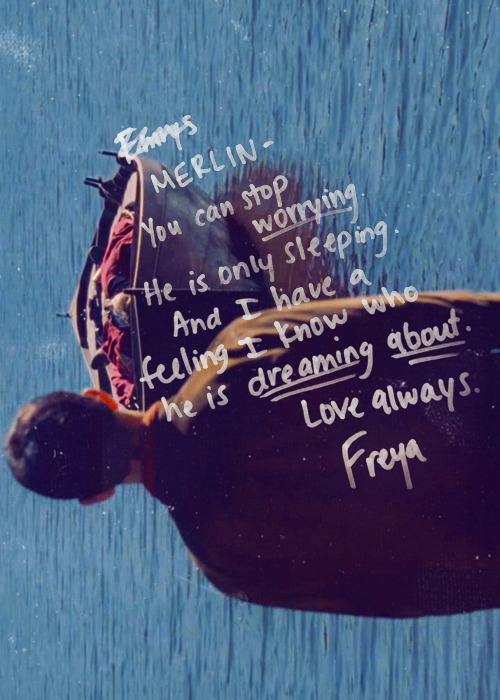 Emrys
MERLIN-
You can stop
worrying.
He is only sleeping.
And I have a
feeling I know who
he is dreaming about.
Love always.
Freya